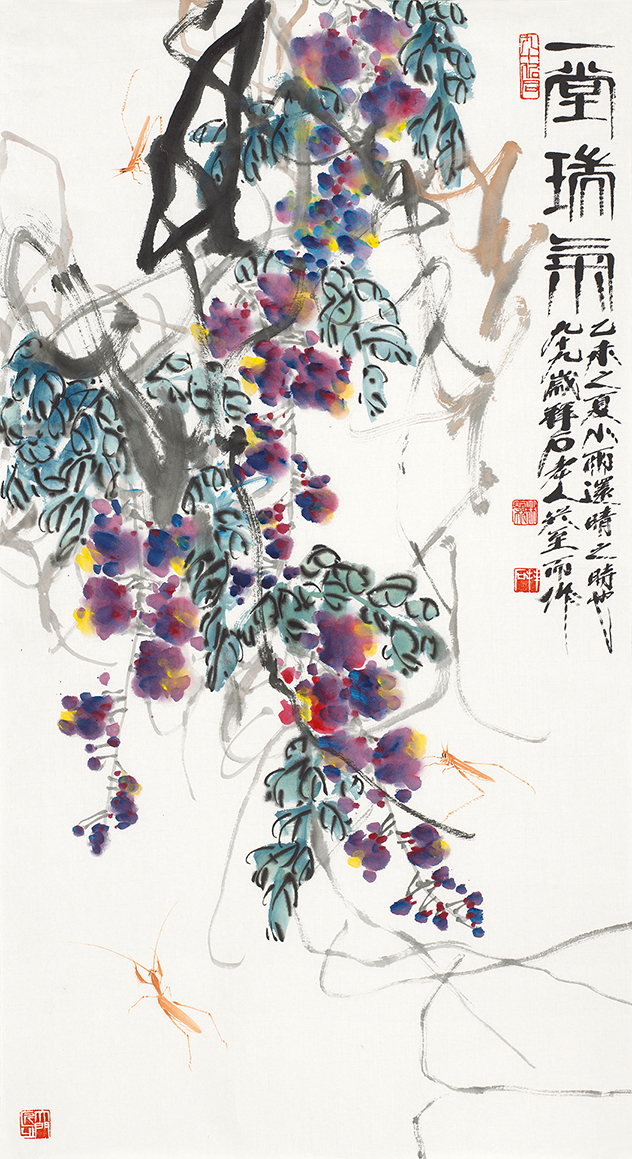 一堂瑞氣
乙未之夏小雨還晴之時也
九十九歲祥石老人兴至而作